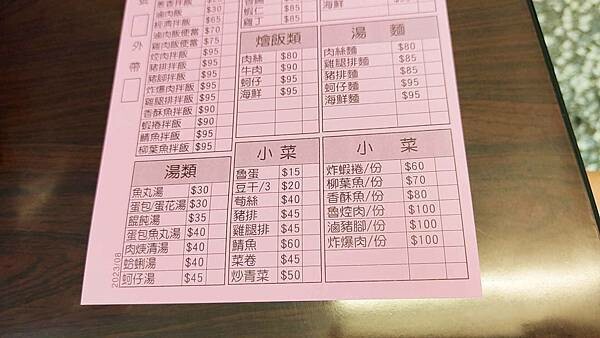 號
外
帶
蔥香拌飯 $50
滷肉飯 $30
經濟拌飯 $65
滷肉飯便當 $70
雞肉飯便當 $75
焢肉拌飯 $95
豬排拌飯 $95
豬腳拌飯 $95
炸爆肉拌飯 $95
雞腿排拌飯 $95
香酥魚拌飯 $90
蝦捲拌飯 $90
鯖魚拌飯 $95
柳葉魚拌飯 $95
蝦仁 $85
雞丁 $85
海鮮
燴飯類
肉絲 $80
牛肉 $90
蚵仔 $95
海鮮 $95
湯麵
肉絲麵 $80
雞腿排麵 $85
豬排麵 $85
蚵仔麵 $95
海鮮麵 $95
湯類
魚丸湯 $30
蛋包/蛋花湯 $30
餛飩湯 $35
蛋包魚丸湯 $40
肉焿清湯 $40
蛤蜊湯 $40
蚵仔湯 $45
小菜
魯蛋 $15
豆干/3 $20
荀絲 $40
豬排 $45
雞腿排 $45
鯖魚 $60
菜卷 $45
炒青菜 $50
小菜
炸蝦捲/份 $60
柳葉魚/份 $70
香酥魚/份 $80
魯焢肉/份 $100
滷豬腳/份 $100
炸爆肉/份 $100
2023/08